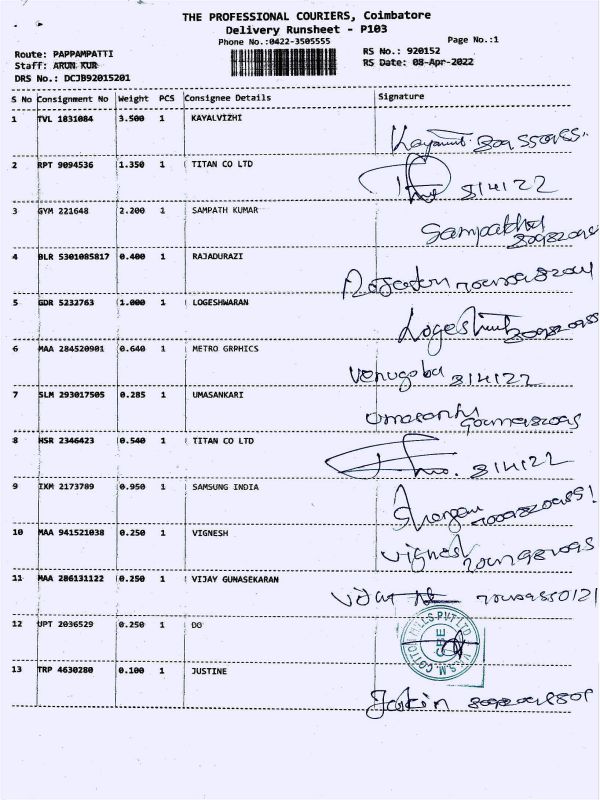 THE PROFESSIONAL COURIERS, Coimbatore
Delivery Runsheet - P103
Phone No.:0422-3505555 Page No.:1
Route: PAPPAMPATTI RS No.: 920152
Staff: ARUN KUR RS Date: 08-Apr-2022
DRS No.: DCJB92015201
S No Consignment No Weight PCS Consignee Details Signature
1 TVL 1831084 3.500 1 KAYALVIZHI
2 RPT 9094536 1.350 1 TITAN CO LTD
8/4/22
3 GYM 221648 2.200 1 SAMPATH KUMAR
Sampath
4 BLR 5301085817 0.400 1 RAJADURAZI
5 GDR 5232763 1.000 1 LOGESHWARAN
6 MAA 284520901 0.640 1 METRO GRPHICS
Venugoba 8/4/22
7 SLM 293017505 0.285 1 UMASANKARI
8 HSR 2346423 0.540 1 TITAN CO LTD
8/4/22
9 IXM 2173789 0.950 1 SAMSUNG INDIA
10 MAA 941521038 0.250 1 VIGNESH
Vignesh
11 MAA 286131122 0.250 1 VIJAY GUNASEKARAN
12 UPT 2036529 0.250 1 DO
COTTON MILLS PVT LTD
CBE
13 TRP 4630280 0.100 1 JUSTINE